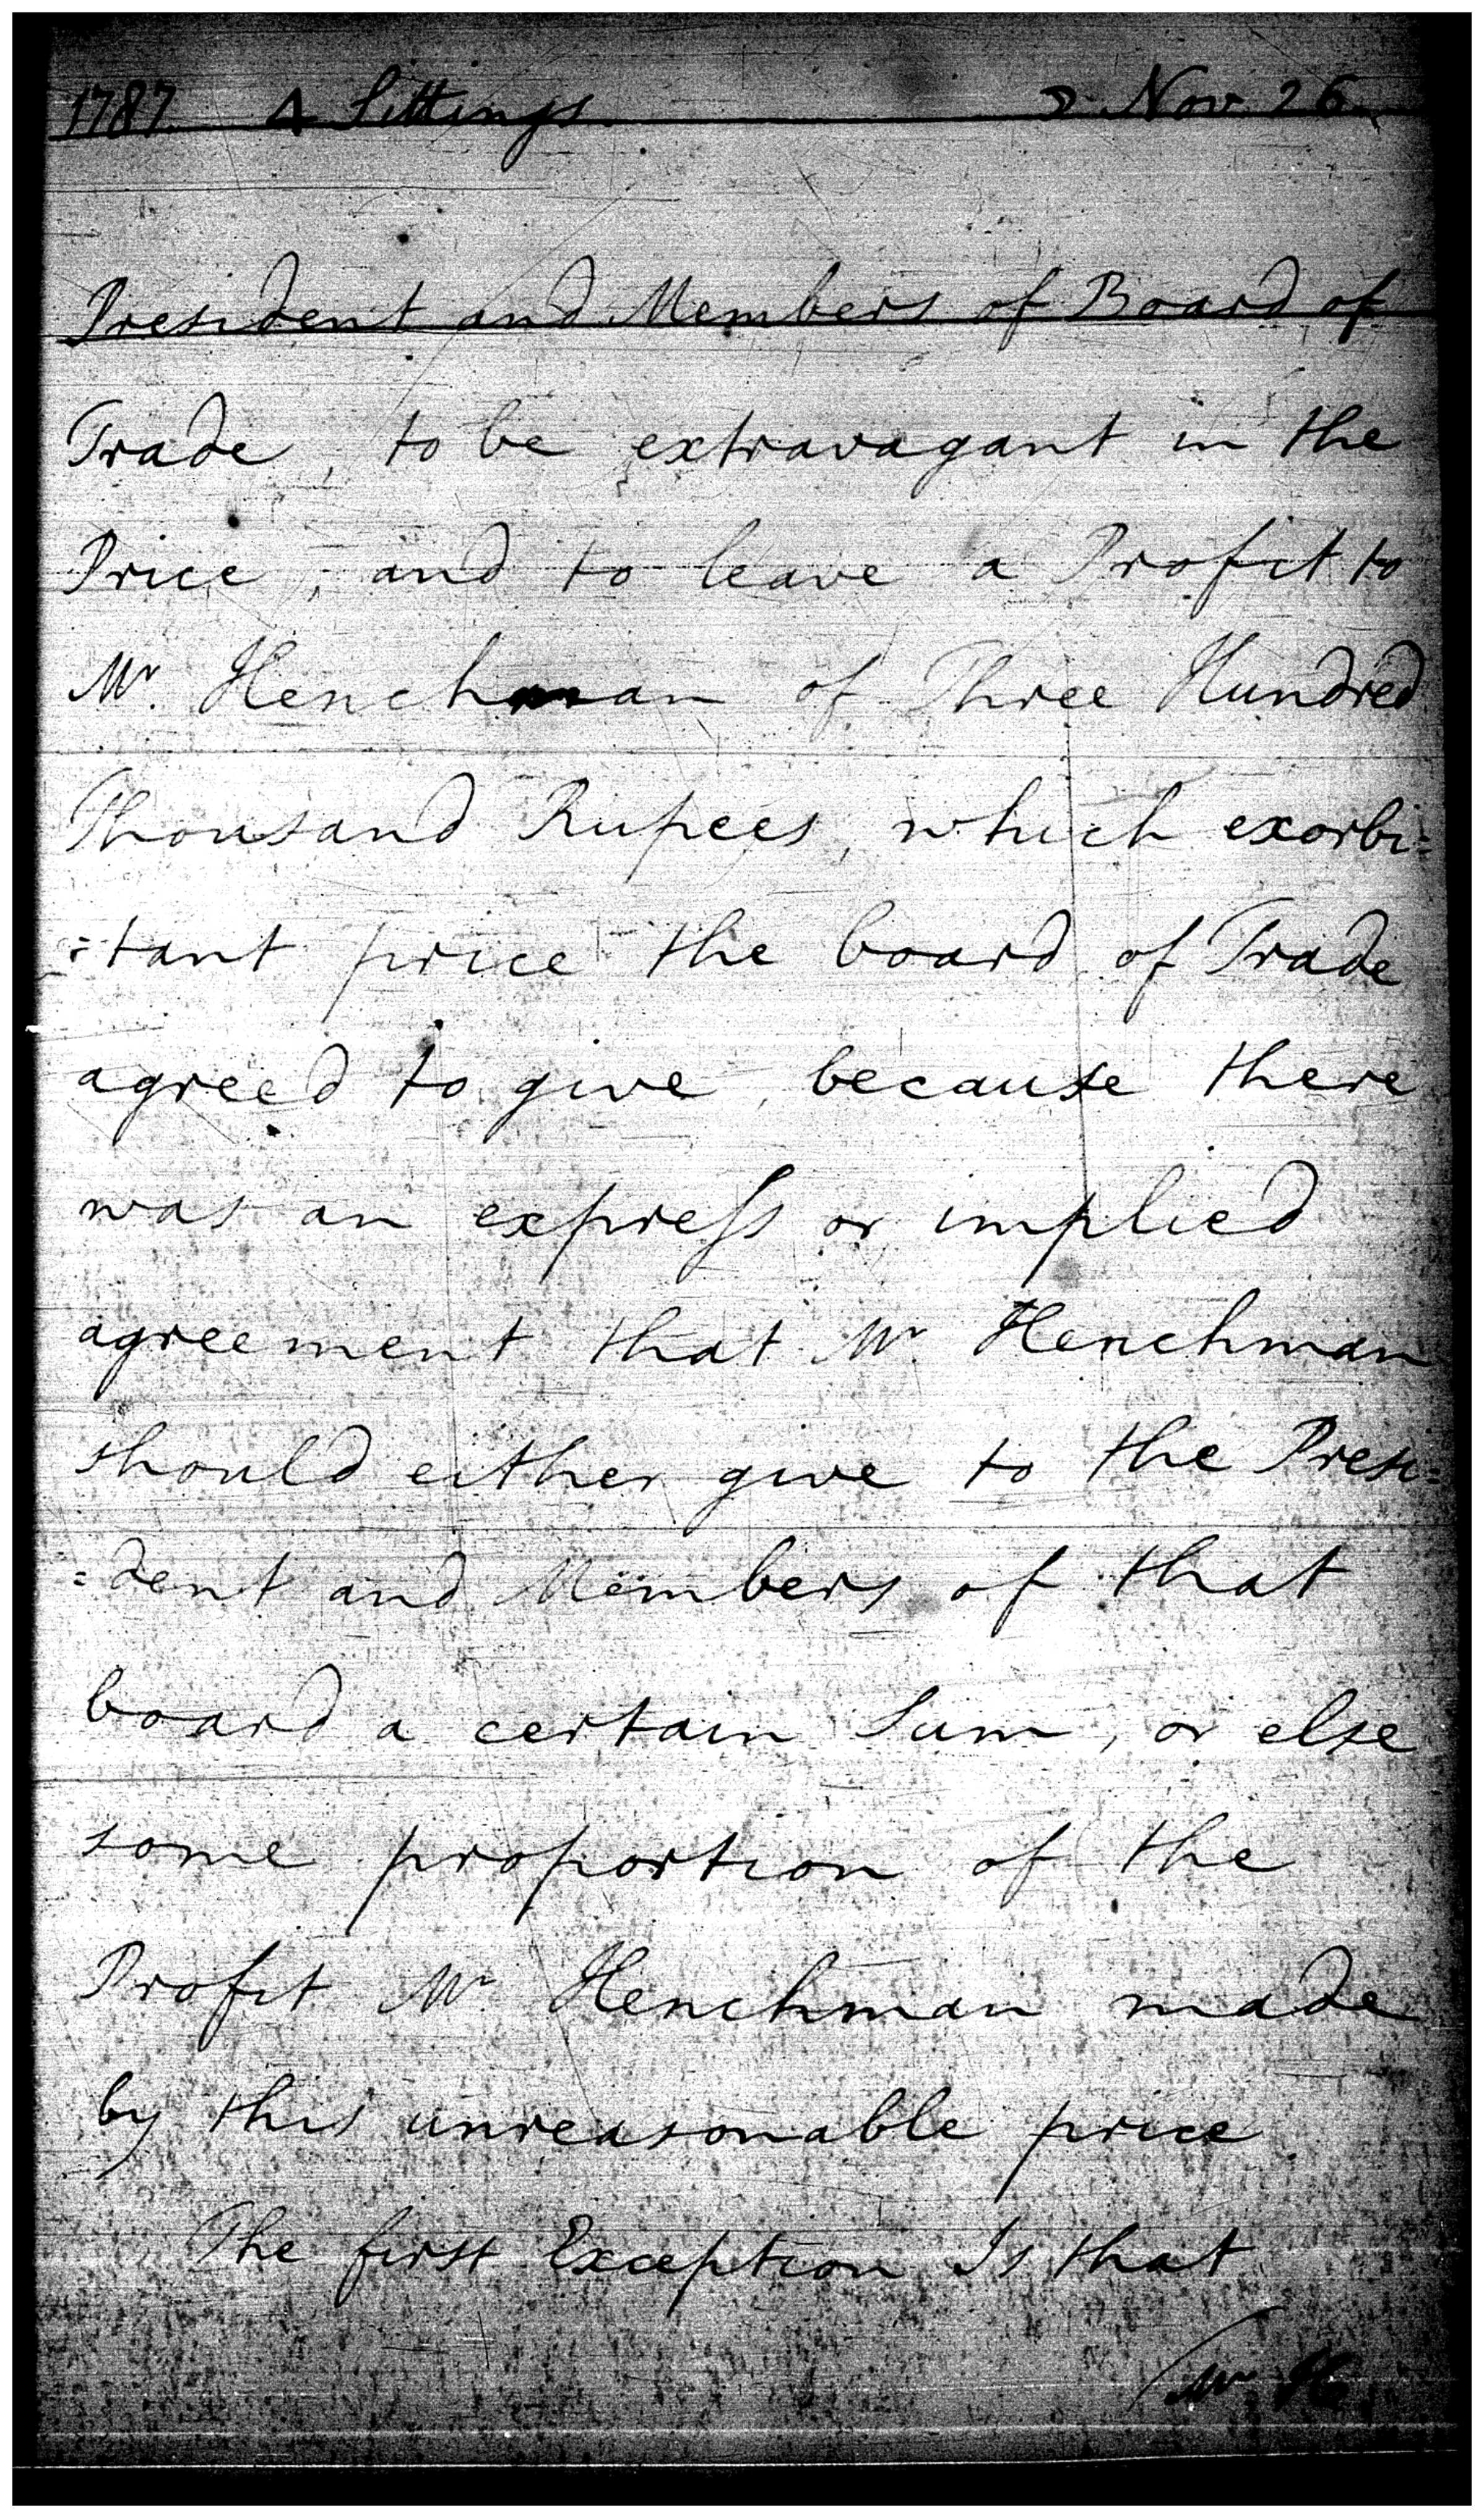 1787 4 Sittings ☽ Nov 26
President and Members of Board of
Trade, to be extravagant in the
Price, and to leave a Profit to
Mr. Henchman of Three Hundred
Thousand Rupees, which exorbi=
=tant price the board of Trade
agreed to give, because there
was an express or implied
agreement that Mr Henchman
should either give to the Presi=
=dent and Members of that
board a certain Sum, or else
some proportion of the
Profit Mr Henchman made
by this unreasonable price
The first Exception Is that
Mr H